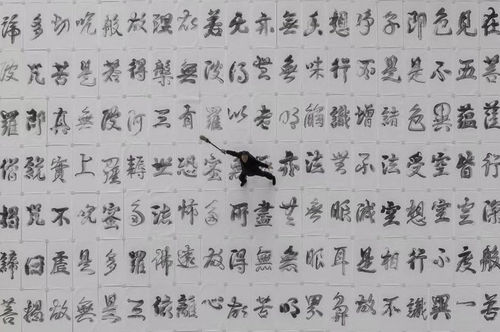 在菩薩行深般若
見五蘊皆空度一
色不異空空不異
即是色受想行識
子是諸法空相不
淨不增不減是故
想行識無眼耳鼻
香味觸法無眼界
無無明亦無無明
亦無老死盡無苦
無得以所得故
若波羅蜜多故心
故無有恐怖遠離
想槃三世諸佛依
故得阿耨多羅三
般若波羅蜜多是
咒是無上咒是無
切苦真實不虛故
多咒即說咒曰揭
諦波羅僧揭諦菩